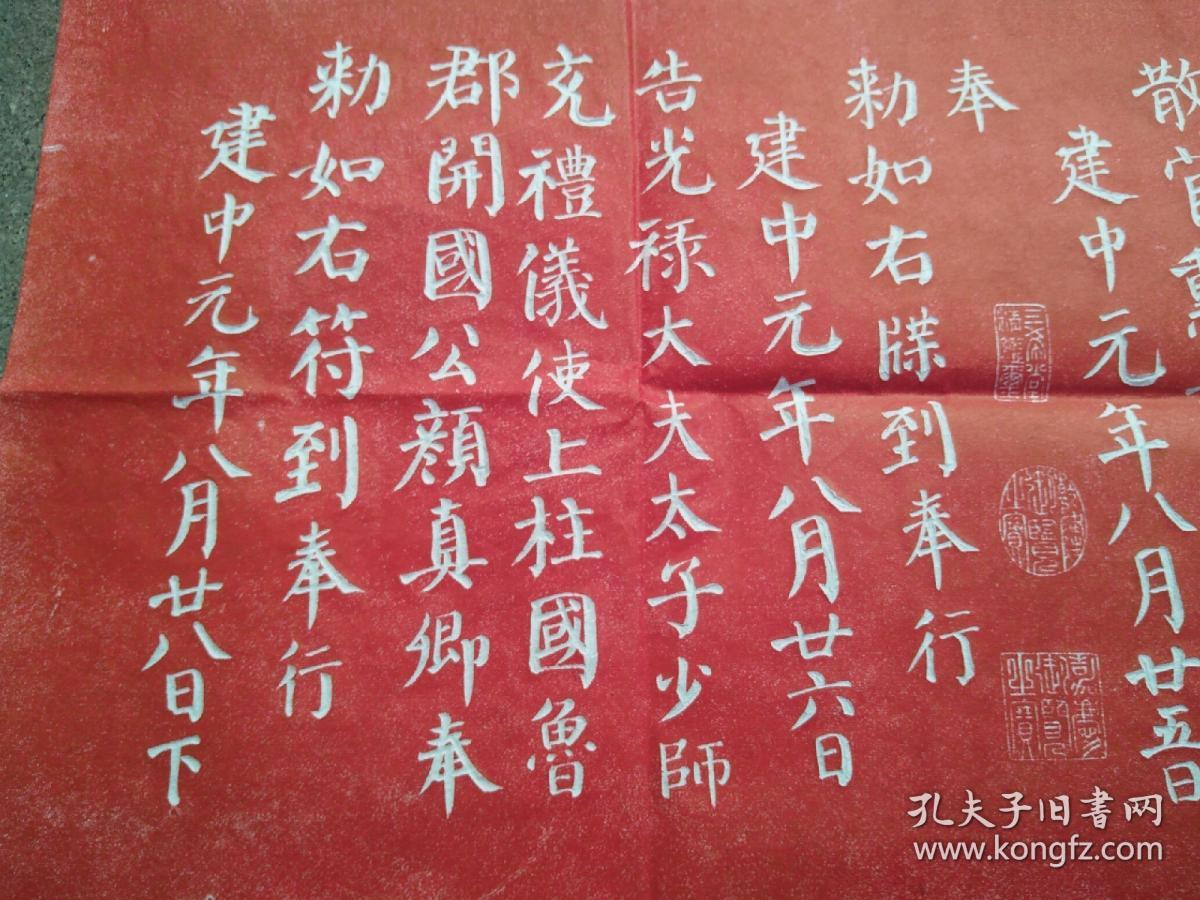 散官
建中元年八月廿五日
奉
勑如右牒到奉行
建中元年八月廿六日
告光禄大夫太子少師
充禮儀使上柱國魯
郡開國公顏真卿奉
勑如右符到奉行
建中元年八月廿八日下
孔夫子旧書网
www.kongfz.com